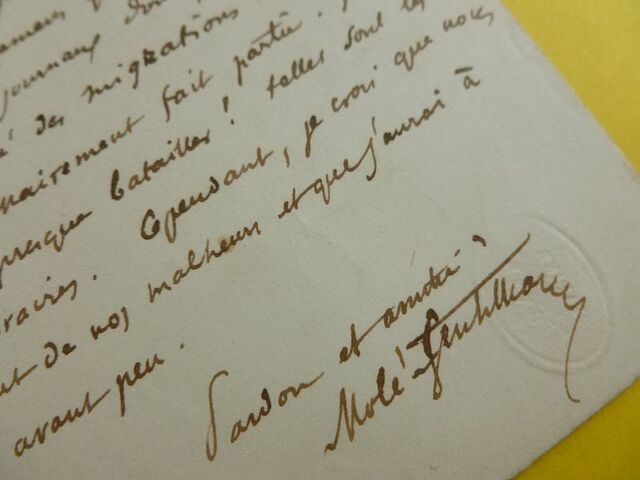 journaux
des migrations
nairement fait partie.
presque batailles! telles sont les
raires. Cependant, je crois que nous
ut de nos malheurs et que j'aurai à
avant peu.
Pardon et amitié
Molé-Gentilhomme